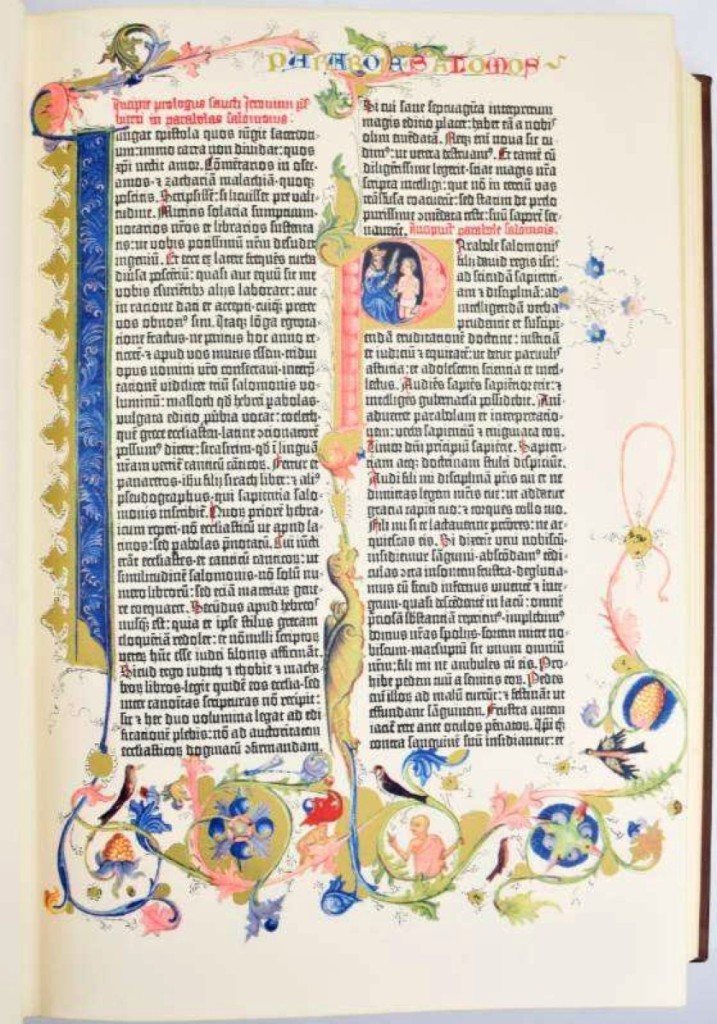 PARABOLE SALOMOIS
Incipit prologus sancti ieronimi p̄s-
biteri in parabolas salomonis
Iungat epistola quos iūgit sacerdoti-
um: immo carta non dividat: quos
xp̄i nectit amor. Cōmētarios in osee.
amos. et zachariā malachiā. quoq;
poscitis. Scripsissē: si licuisset pre vali-
tudine. Mittitis solacia sumptuum.
notarios nr̄os et librarios sustenta-
tis: ut vobis potissimū nr̄m desudet
ingeniū. Et ecce ex latere frequēs turba
diversa poscētiū: quasi aut equū sit me
vobis esurientibꝰ aliis laborare: aut
in racione dati et accepti. cuiq̄ preter
vos obnoxiꝰ sim. Itaq; lōga egrota-
tione fractus. ne penitus hoc anno re-
ticerē. et apud vos mutus essem. tridui
opus nomini vr̄o consecravi. interp̄-
tationē videlicet triū salomonis vo-
luminū: masloth qd̄ hebrei pabolas.
vulgata editio p̄verbia vocat: coeleth.
quē grece ecclesiasten. latine ꝯcionatorē
possumꝰ dicere: sirasirim. qd̄ ī linguā
nr̄am vertit̄ canticū cāticoꝝ. Fertur et
panaretos. ihū filii sirach liber: et aliꝰ
pseudographus. qui sapientia salo-
monis inscribit̄. Quoꝝ priorē hebra-
icum repperi. nō ecclesiasticū ut apud la-
tinos: sed pabolas p̄notatū. Cui iūcti
erāt ecclesiastes. et canticū canticoꝝ: ut
similitudinē salomonis. nō solū nu-
mero librorū: sed etiā materiaꝝ gene-
re coequaret. Secūdus apud hebreos
nusq̄ est: quia et ipse stilus grecam
eloquētiā redolet: et nōnulli scriptoꝝ
veteꝝ hūc esse iudei filonis affirmāt.
Sicud ergo iudith et thobie et macha-
beoꝝ libros. legit quidē eos ecclesia. sed
inter canoicas scripturas nō recipit:
sic et hec duo volumina legat ad edi-
ficationē plebis: nō ad auctoritatem
ecclesiasticoꝝ dogmatū ꝯfirmandam.
Si cui sane septuaginta interpretum
magis editio placet: habet eā a nobis
olim emēdatā. Neq; enī nova sic cu-
dimꝰ: ut vetera destruamꝰ. Et tamē cū
diligentissime legerit. sciat magis nr̄a
scripta intelligi: que nō in terciū vas
trāsfusa coacuerīt: sed statim de prelo
purissime ꝯmēdata teste: suū saporē ser-
vaverīt. Incipiūt parabole salomonis.
Parabole salomonis
filii david regis isrl̄:
ad sciendā sapienti-
am et disciplinā: ad
intelligendā verba
prudentie et suscipi-
endā eruditationē doctrine: iusticiā
et iudiciū et equitatē: ut detur parvulis
astutia: et adolescenti scientia et intel-
lectus. Audiēs sapiēs sapiētior erit: et
intelligēs gubernacla possidebit. Ani-
advertet parabolam et interpretatio-
nem: verba sapientiū et enigmata eoꝝ.
Timor dn̄i principiū sapietie. Sapien-
tiam atq; doctrinam stulti despiciūt.
Audi fili mi disciplinā pr̄is tui et ne
dimittas legem mr̄is tue: ut addatur
gracia capiti tuo: et torques collo tuo.
Fili mi si te lactaverint pctōres: ne ac-
quiescas eis. Si dixerīt veni nobiscū.
insidiemur sāguini. abscōdamꝰ tēdi-
culas ꝯtra insontem frustra. degluttia-
mus eū sicud infernus viventē et inte-
grum. quasi descēdentē in lacū: omnē
p̄ciosā sbstanciā reperiemꝰ. implebimꝰ
domus nr̄as spoliis. sortem mitte no-
biscum. marsupiū sit unum omniū
nr̄m: fili mi ne ambules cū eis. Pro-
hibe pedem tuū a semitis eoꝝ. Pedes
eni illoꝝ ad malū currūt: et festināt ut
effundant sāguinem. Frustra autem
iacit̄ rete ante oculos pēnatoꝝ. Ipi q̄
contra sanguinē suū insidiantur: et